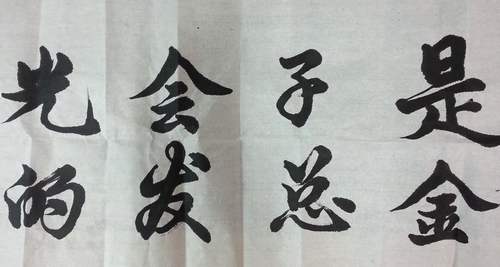 是金
子总
会发
光的